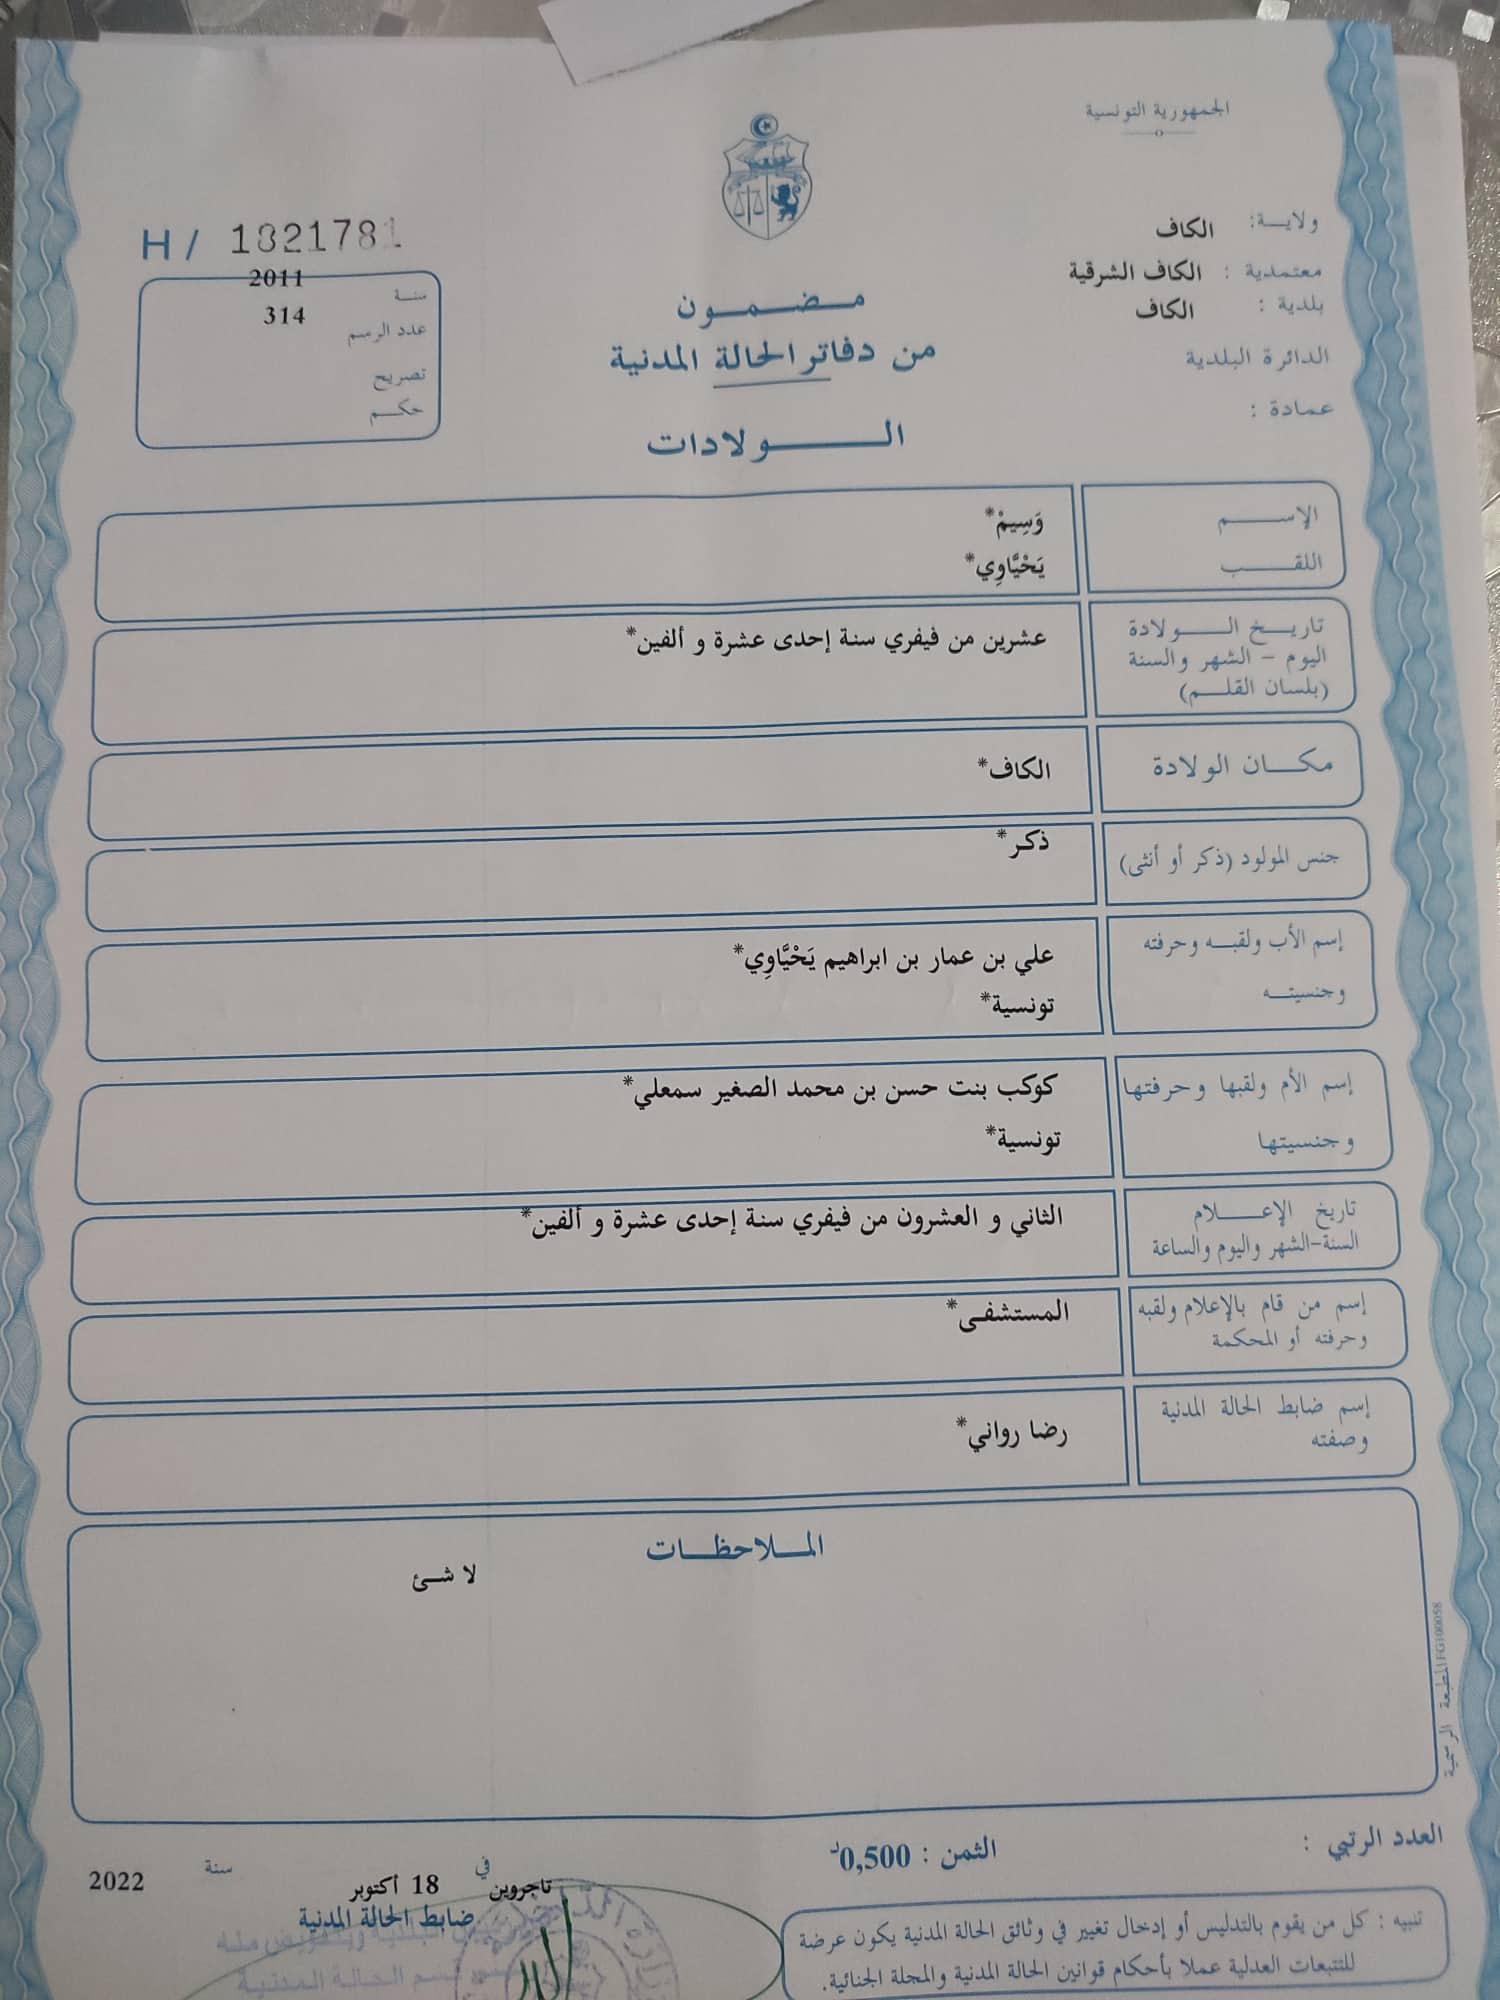 الجمهورية التونسية
ولايـــة: الكاف
معتمدية : الكاف الشرقية
بلدية : الكاف
الدائرة البلدية
عمادة :
H / 1821781
سنـة 2011
عدد الرسم 314
تصريح
حكـــم
مـضـمـون
من دفاتر الحالة المدنية
الـــولادات
الإســـم وَسِيمْ*
اللقـــب يَحْيَّاوِي*
تاريــخ الـــولادة عشرين من فيفري سنة إحدى عشرة و ألفين*
اليوم – الشهر والسنة
(بلسان القلـــم)
مكـــان الولادة الكاف*
جنس المولود (ذكر أو أنثى) ذكر*
إسم الأب ولقبـــه وحرفته علي بن عمار بن ابراهيم يَحْيَّاوِي*
وجنسيتـــه تونسية*
إسم الأم ولقبها وحرفتها كوكب بنت حسن بن محمد الصغير سمعلي*
وجنسيتها تونسية*
تاريخ الإعـــلام الثاني و العشرون من فيفري سنة إحدى عشرة و ألفين*
السنة-الشهر واليوم والساعة
إسم من قام بالإعلام ولقبه المستشفى*
وحرفته أو المحكمة
إسم ضابط الحالة المدنية رضا رواني*
وصفته
الملاحظـــات
لا شئ
المطبعة الرسمية FG100058
العدد الرتبي :
الثمن : 0,500د
تاجروين في 18 أكتوبر سنة 2022
ضابط الحالة المدنية
تنبيه : كل من يقوم بالتدليس أو إدخال تغيير في وثائق الحالة المدنية يكون عرضة
للتتبعات العدلية عملا بأحكام قوانين الحالة المدنية والمجلة الجنائية.